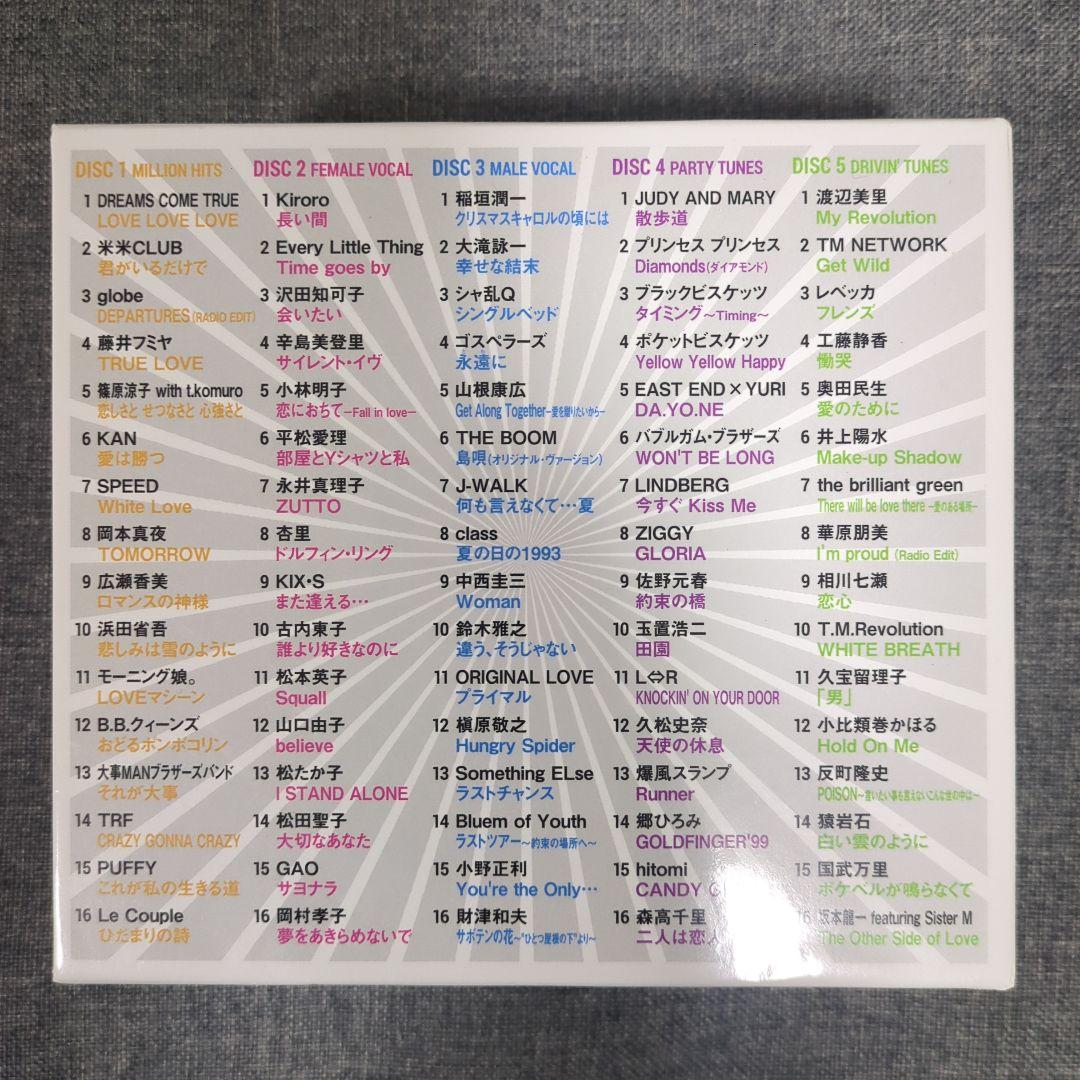 DISC 1 MILLION HITS
1 DREAMS COME TRUE
LOVE LOVE LOVE
2 米米CLUB
君がいるだけで
3 globe
DEPARTURES (RADIO EDIT)
4 藤井フミヤ
TRUE LOVE
5 篠原涼子 with t.komuro
恋しさと せつなさと 心強さと
6 KAN
愛は勝つ
7 SPEED
White Love
8 岡本真夜
TOMORROW
9 広瀬香美
ロマンスの神様
10 浜田省吾
悲しみは雪のように
11 モーニング娘。
LOVEマシーン
12 B.B.クィーンズ
おどるポンポコリン
13 大事MANブラザーズバンド
それが大事
14 TRF
CRAZY GONNA CRAZY
15 PUFFY
これが私の生きる道
16 Le Couple
ひだまりの詩
DISC 2 FEMALE VOCAL
1 Kiroro
長い間
2 Every Little Thing
Time goes by
3 沢田知可子
会いたい
4 辛島美登里
サイレント・イヴ
5 小林明子
恋におちて−Fall in love−
6 平松愛理
部屋とYシャツと私
7 永井真理子
ZUTTO
8 杏里
ドルフィン・リング
9 KIX・S
また逢える…
10 古内東子
誰より好きなのに
11 松本英子
Squall
12 山口由子
believe
13 松たか子
I STAND ALONE
14 松田聖子
大切なあなた
15 GAO
サヨナラ
16 岡村孝子
夢をあきらめないで
DISC 3 MALE VOCAL
1 稲垣潤一
クリスマスキャロルの頃には
2 大滝詠一
幸せな結末
3 シャ乱Q
シングルベッド
4 ゴスペラーズ
永遠に
5 山根康広
Get Along Together−愛を贈りたいから−
6 THE BOOM
島唄(オリジナル・ヴァージョン)
7 J-WALK
何も言えなくて…夏
8 class
夏の日の1993
9 中西圭三
Woman
10 鈴木雅之
違う、そうじゃない
11 ORIGINAL LOVE
プライマル
12 槇原敬之
Hungry Spider
13 Something ELse
ラストチャンス
14 Bluem of Youth
ラストツアー〜約束の場所へ〜
15 小野正利
You're the Only…
16 財津和夫
サボテンの花〜"ひとつ屋根の下"より〜
DISC 4 PARTY TUNES
1 JUDY AND MARY
散歩道
2 プリンセス プリンセス
Diamonds(ダイアモンド)
3 ブラックビスケッツ
タイミング〜Timing〜
4 ポケットビスケッツ
Yellow Yellow Happy
5 EAST END×YURI
DA.YO.NE
6 バブルガム・ブラザーズ
WON'T BE LONG
7 LINDBERG
今すぐ Kiss Me
8 ZIGGY
GLORIA
9 佐野元春
約束の橋
10 玉置浩二
田園
11 L⇔R
KNOCKIN' ON YOUR DOOR
12 久松史奈
天使の休息
13 爆風スランプ
Runner
14 郷ひろみ
GOLDFINGER'99
15 hitomi
CANDY
16 森高千里
二人は恋
DISC 5 DRIVIN' TUNES
1 渡辺美里
My Revolution
2 TM NETWORK
Get Wild
3 レベッカ
フレンズ
4 工藤静香
慟哭
5 奥田民生
愛のために
6 井上陽水
Make-up Shadow
7 the brilliant green
There will be love there −愛のある場所−
8 華原朋美
I'm proud (Radio Edit)
9 相川七瀬
恋心
10 T.M.Revolution
WHITE BREATH
11 久宝留理子
「男」
12 小比類巻かほる
Hold On Me
13 反町隆史
POISON〜言いたい事も言えないこんな世の中は〜
14 猿岩石
白い雲のように
15 国武万里
ポケベルが鳴らなくて
16 坂本龍一 featuring Sister M
The Other Side of Love